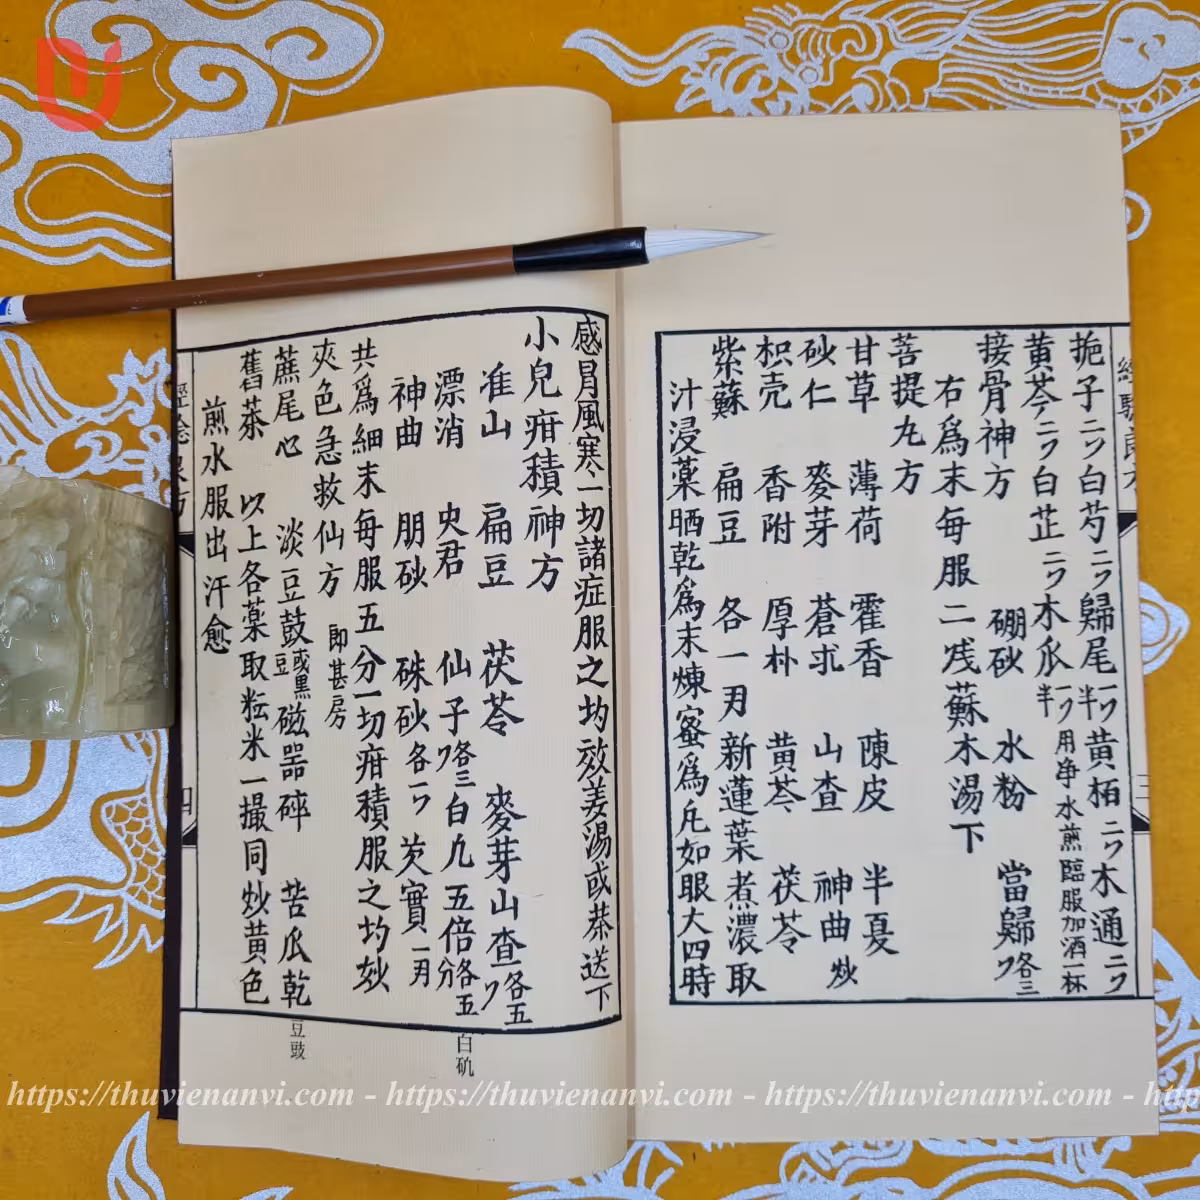 扼子二㇇白芍二㇇歸尾一㇇半黄栢二㇇木通二㇇
黄芩二㇇白芷二㇇木瓜一㇇半用净水煎臨服加酒一杯
接骨神方 硼砂 水粉 當歸各三㇇
右爲末每服二戋蘇木湯下
菩提九方
甘草 薄荷 霍香 陳皮 半夏
砂仁 麥芽 蒼求 山查 神曲炒
枳壳 香附 厚朴 黄芩 茯苓
紫蘇 扁豆 各一月新蓮葉煮濃取
汁浸藥晒乾爲末煉蜜爲凢如眼大四時
三
感冒風寒一切諸症服之均效姜湯或茶送下
小兒疳積神方
准山 扁豆 茯苓 麥芽山查各五㇇
漂消 史君 仙子各三㇇白凢五倍各五分
神曲 朋砂 硃砂各一㇇ 芡實一月
共爲細末每服五分一切疳積服之均効
夾色急救仙方 即甚房
蔗尾心 淡豆鼓或黒豆磁器碎 苦瓜乾
舊茶 以上各藥取粘米一撮同炒黄色
煎水服出汗愈
四
白矾
豆豉
https://thuvienanvi.com - https://thuvienanvi.com - https://thuvienanvi.com - http